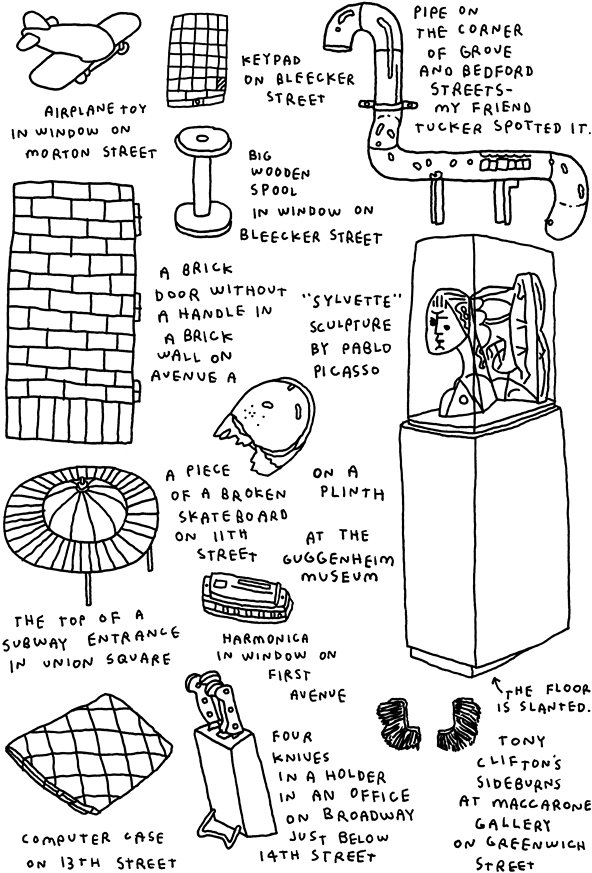 AIRPLANE TOY
IN WINDOW ON
MORTON STREET
KEYPAD
ON BLEECKER
STREET
PIPE ON
THE CORNER
OF GROVE
AND BEDFORD
STREETS-
MY FRIEND
TUCKER SPOTTED IT.
BIG
WOODEN
SPOOL
IN WINDOW ON
BLEECKER STREET
A BRICK
DOOR WITHOUT
A HANDLE IN
A BRICK
WALL ON
AVENUE A
"SYLVETTE"
SCULPTURE
BY PABLO
PICASSO
ON A
PLINTH
AT THE
GUGGENHEIM
MUSEUM
THE FLOOR
IS SLANTED.
A PIECE
OF A BROKEN
SKATEBOARD
ON 11TH
STREET
THE TOP OF A
SUBWAY ENTRANCE
IN UNION SQUARE
HARMONICA
IN WINDOW ON
FIRST
AVENUE
COMPUTER CASE
ON 13TH STREET
FOUR
KNIVES
IN A HOLDER
IN AN OFFICE
ON BROADWAY
JUST BELOW
14TH STREET
TONY
CLIFTON'S
SIDEBURNS
AT MACCARONE
GALLERY
ON GREENWICH
STREET